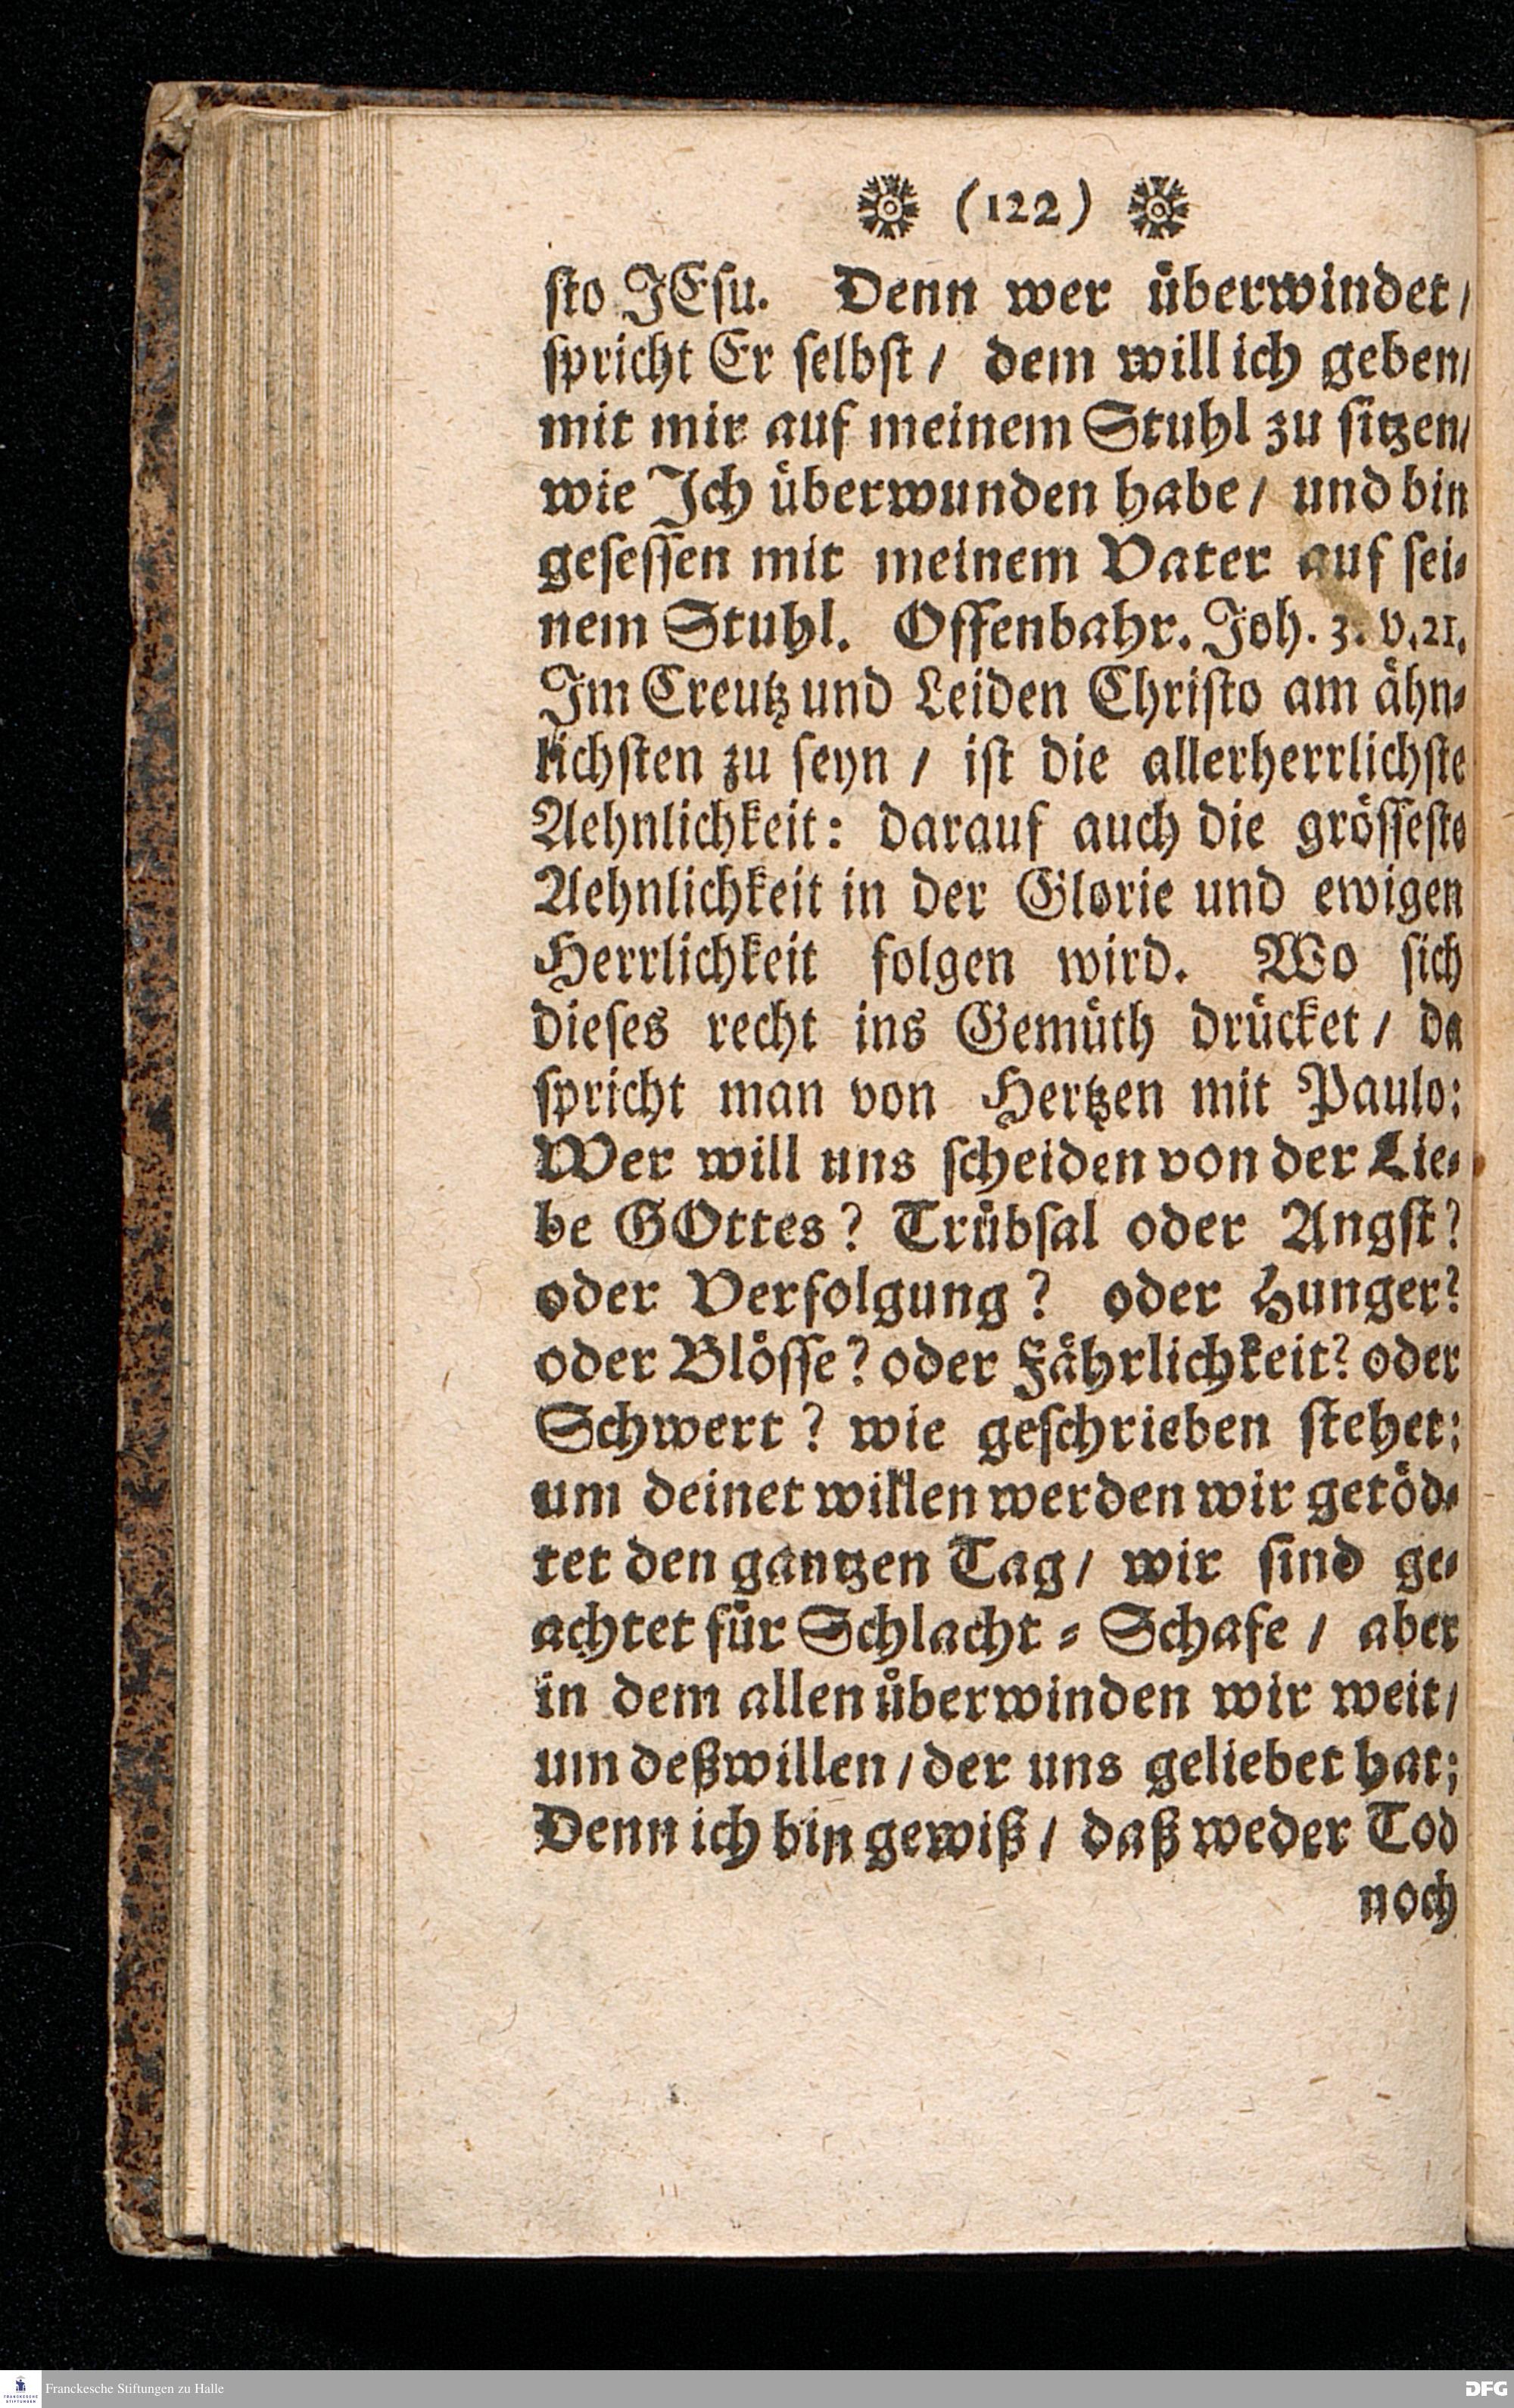 (122)
sto JEsu. Denn wer überwindet/
spricht Er selbst/ dem will ich geben/
mit mir auf meinem Stuhl zu sitzen/
wie Ich überwunden habe/ und bin
gesessen mit meinem Vater auf sei-
nem Stuhl. Offenbahr. Joh. 3. v. 21.
Im Creutz und Leiden Christo am ähn-
lichsten zu seyn/ ist die allerherrlichste
Aehnlichkeit: darauf auch die grösseste
Aehnlichkeit in der Glorie und ewigen
Herrlichkeit folgen wird. Wo sich
dieses recht ins Gemüth drücket/ da
spricht man von Hertzen mit Paulo:
Wer will uns scheiden von der Lie-
be GOttes? Trübsal oder Angst?
oder Verfolgung? oder Hunger?
oder Blösse? oder Fährlichkeit? oder
Schwert? wie geschrieben stehet:
um deinet willen werden wir getöd-
tet den gantzen Tag/ wir sind ge-
achtet für Schlacht-Schafe/ aber
in dem allen überwinden wir weit/
um deßwillen/ der uns geliebet hat;
Denn ich bin gewiß/ daß weder Tod
noch
FRANCKESCHE STIFTUNGEN
Franckesche Stiftungen zu Halle
DFG